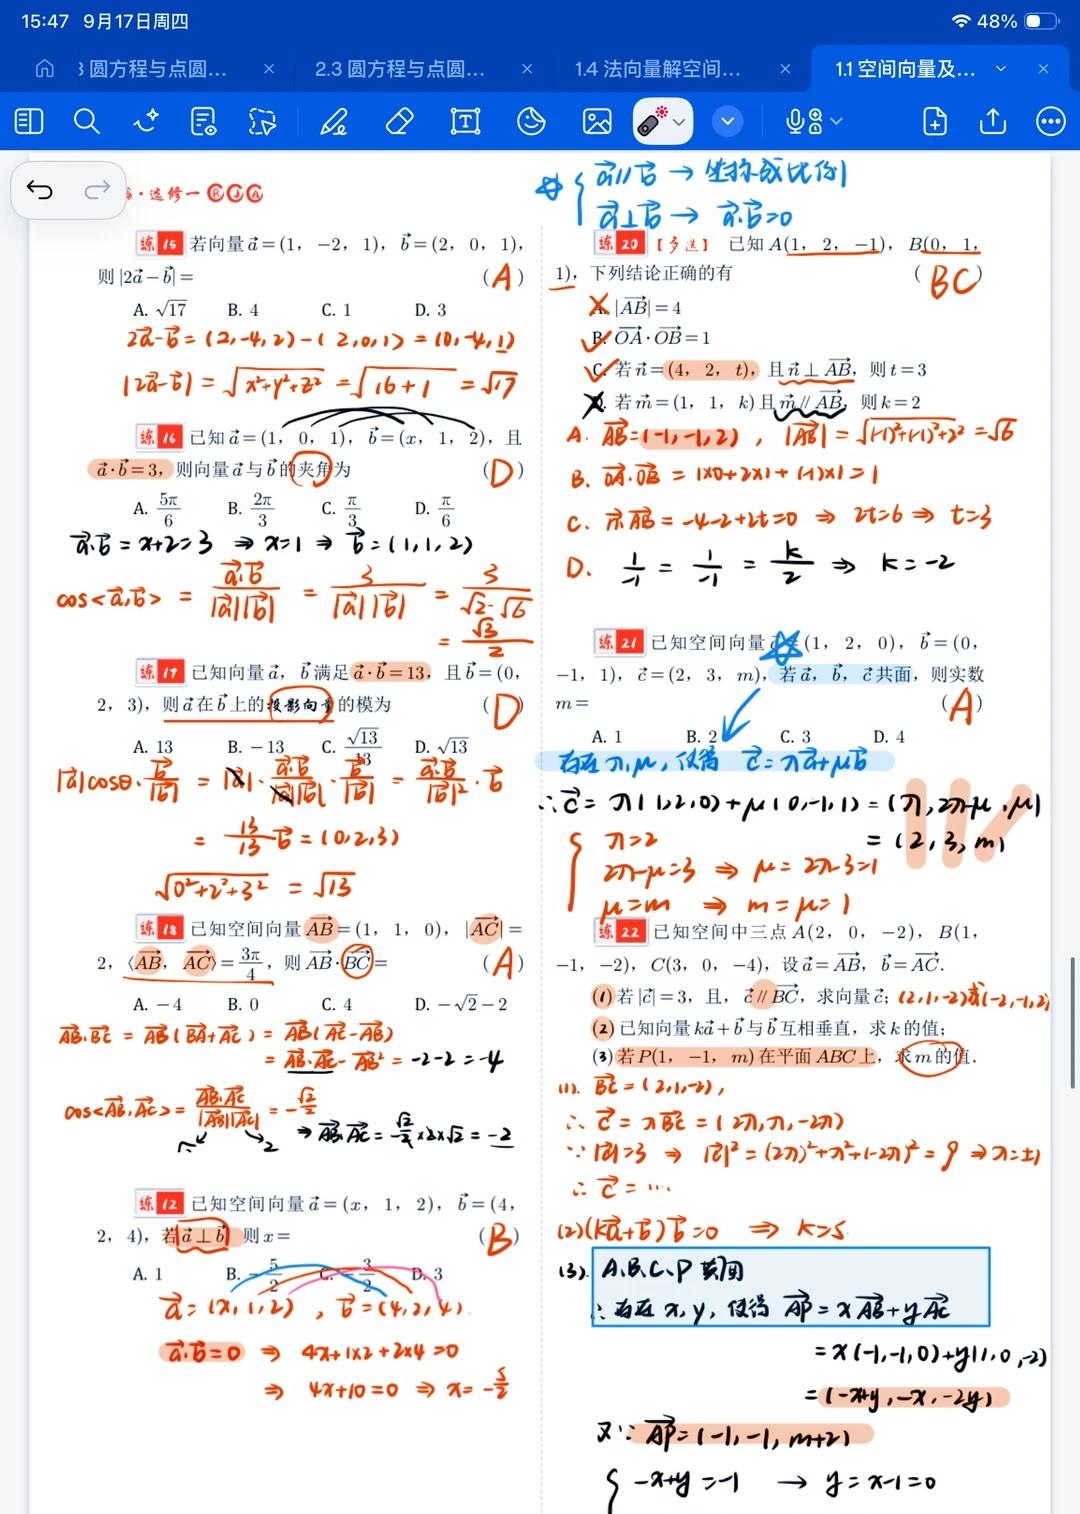 15:47 9月17日周四
48%
3 圆方程与点圆…
2.3 圆方程与点圆…
1.4 法向量解空间…
1.1 空间向量及…
·选修一 RJA
a⃗∥b⃗ → 坐标成比例
a⃗⊥b⃗ → a⃗·b⃗=0
练15 若向量a⃗=(1, −2, 1), b⃗=(2, 0, 1),
则|2a⃗−b⃗|= (A)
A. √17 B. 4 C. 1 D. 3
2a⃗-b⃗ = (2,-4,2)-(2,0,1) = (0,-4,1)
|2a⃗-b⃗| = √(x²+y²+z²) = √(16+1) = √17
练16 已知a⃗=(1, 0, 1), b⃗=(x, 1, 2), 且
a⃗·b⃗=3, 则向量a⃗与b⃗的夹角为 (D)
A. 5π/6 B. 2π/3 C. π/3 D. π/6
a⃗·b⃗ = x+2=3 ⇒ x=1 ⇒ b⃗=(1,1,2)
cos<a⃗,b⃗> = a⃗·b⃗/|a⃗||b⃗| = 3/|a⃗||b⃗| = 3/√2·√6
= √3/2
练17 已知向量a⃗, b⃗满足a⃗·b⃗=13, 且b⃗=(0,
2, 3), 则a⃗在b⃗上的投影向量的模为 (D)
A. 13 B. −13 C. √13/13 D. √13
|a⃗|cosθ·b⃗/|b⃗| = |a⃗|·a⃗·b⃗/|a⃗||b⃗|·b⃗/|b⃗| = a⃗·b⃗/|b⃗|²·b⃗
= 13/13 b⃗ = (0,2,3)
√(0²+2²+3²) = √13
练18 已知空间向量AB⃗=(1, 1, 0), |AC⃗|=
2, ⟨AB⃗, AC⃗⟩=3π/4, 则AB⃗·BC⃗= (A)
A. −4 B. 0 C. 4 D. −√2−2
AB⃗·BC⃗ = AB⃗(BA⃗+AC⃗) = AB⃗(AC⃗-AB⃗)
= AB⃗·AC⃗-AB⃗² = -2-2=-4
cos<AB⃗,AC⃗> = AB⃗·AC⃗/|AB⃗||AC⃗| = -√2/2
√2 2 ⇒ AB⃗·AC⃗ = -√2/2×2×√2 = -2
练12 已知空间向量a⃗=(x, 1, 2), b⃗=(4,
2, 4), 若a⃗⊥b⃗, 则x= (B)
A. 1 B. −5/2 C. −3/2 D. 3
a⃗=(x,1,2), b⃗=(4,2,4).
a⃗·b⃗=0 ⇒ 4x+1×2+2×4=0
⇒ 4x+10=0 ⇒ x=-5/2
练20 【多选】 已知A(1, 2, −1), B(0, 1,
1), 下列结论正确的有 (BC)
A. |AB⃗|=4
B. OA⃗·OB⃗=1
C. 若n⃗=(4, 2, t), 且n⃗⊥AB⃗, 则t=3
D. 若m⃗=(1, 1, k)且m⃗∥AB⃗, 则k=2
A. AB⃗=(-1,-1,2), |AB⃗|=√((-1)²+(-1)²+2²)=√6
B. OA⃗·OB⃗ = 1×0+2×1+(-1)×1=1
C. n⃗·AB⃗=-4-2+2t=0 ⇒ 2t=6 ⇒ t=3
D. 1/-1 = 1/-1 = k/2 ⇒ k=-2
练21 已知空间向量a⃗=(1, 2, 0), b⃗=(0,
−1, 1), c⃗=(2, 3, m), 若a⃗, b⃗, c⃗共面, 则实数
m= (A)
A. 1 B. 2 C. 3 D. 4
存在λ,μ, 使得 c⃗=λa⃗+μb⃗
∴c⃗=λ(1,2,0)+μ(0,-1,1)=(λ,2λ-μ,μ)
=(2,3,m)
λ=2
2λ-μ=3 ⇒ μ=2λ-3=1
μ=m ⇒ m=μ=1
练22 已知空间中三点A(2, 0, −2), B(1,
−1, −2), C(3, 0, −4), 设a⃗=AB⃗, b⃗=AC⃗.
(1)若|c⃗|=3, 且, c⃗∥BC⃗, 求向量c⃗; (2,1,-2)或(-2,-1,2)
(2)已知向量ka⃗+b⃗与b⃗互相垂直, 求k的值;
(3)若P(1, −1, m)在平面ABC上, 求m的值.
(1). BC⃗=(2,1,-2),
∴ c⃗=λBC⃗=(2λ,λ,-2λ)
∵|c⃗|=3 ⇒ |c⃗|²=(2λ)²+λ²+(-2λ)²=9 ⇒λ=±1
∴ c⃗=…
(2)(ka⃗+b⃗)b⃗=0 ⇒ k=5.
(3). A.B.C.P 共面
∴ 存在x,y, 使得 AP⃗=xAB⃗+yAC⃗
=x(-1,-1,0)+y(1,0,-2)
=(-x+y,-x,-2y)
又∵ AP⃗=(-1,-1,m+2)
-x+y=-1 → y=x-1=0